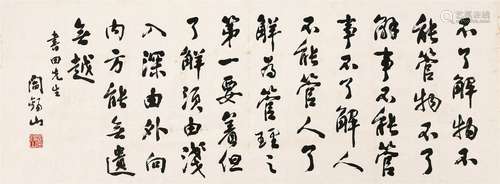 不了解物不
能管物不了
解事不能管
事不了解人
不能管人了
解為管理之
第一要着但
了解須由淺
入深由外向
内方能無遺
無越
書田先生
閻錫山